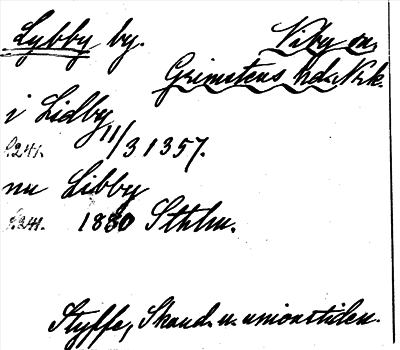 Lybby by. Viby sn.
Grimstens hd. Nrk.
i Lidby
11/3 1357.
nu Libby
S. 241. 1880 Sthlm.
Styffe, Skand. u. unionstiden.